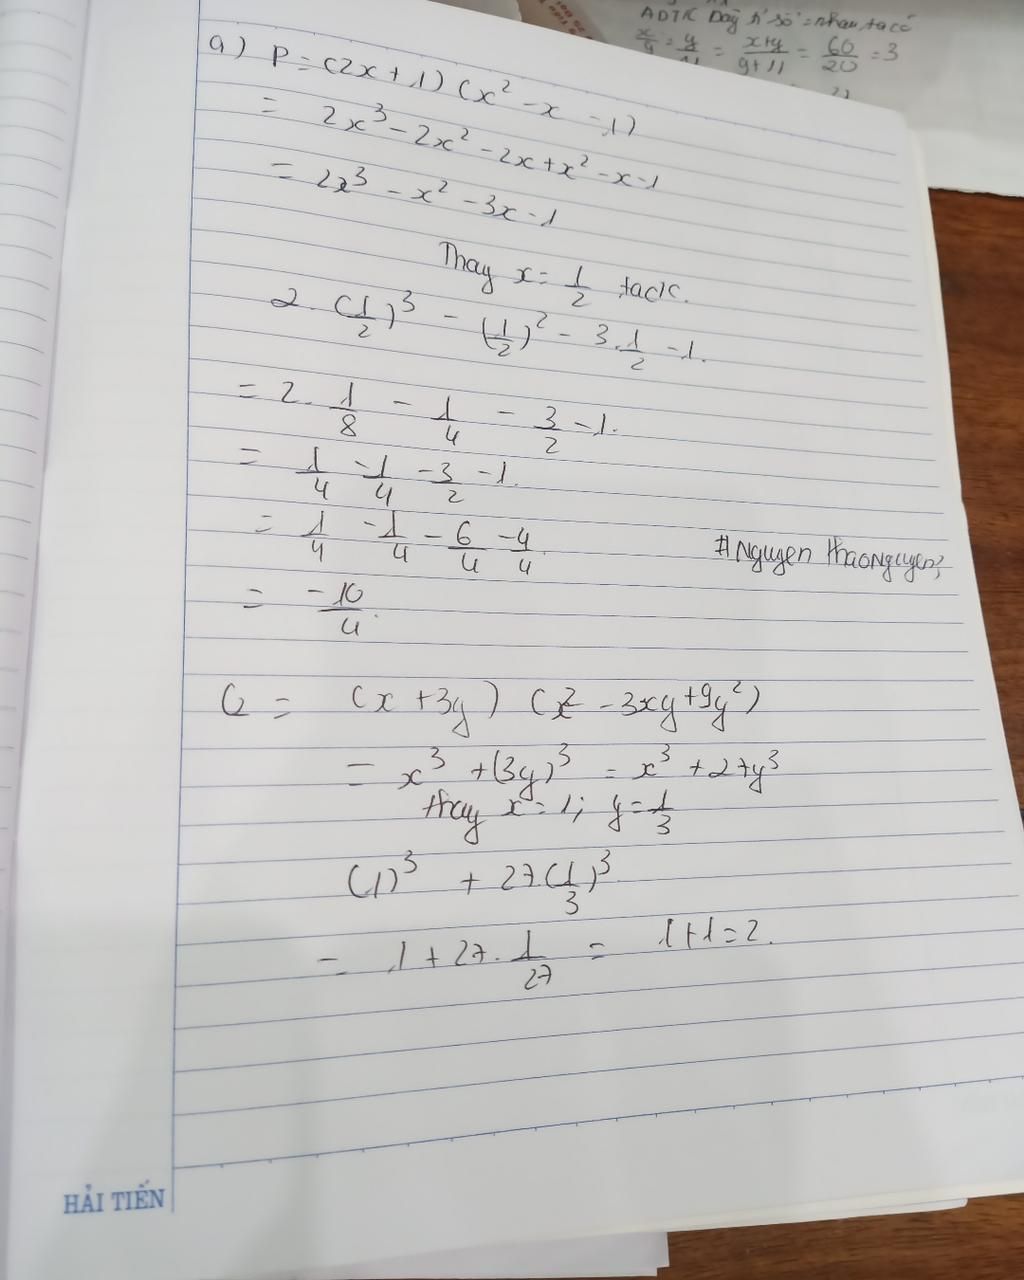 ADTC Dãy tỉ số = nhau ta có
= y = x+y/9+11 = 60/20 = 3
a) P = (2x+1) (x² - x - 1)
= 2x³ - 2x² - 2x + x² - x - 1
= 2x³ - x² - 3x - 1
Thay x = 1/2 tacк.
2. (1/2)³ - (1/2)² - 3.1/2 - 1.
= 2. 1/8 - 1/4 - 3/2 - 1.
= 1/4 - 1/4 - 3/2 - 1.
= 1/4 - 1/4 - 6/4 - 4/4
#Nguyen thaoNguyen;
= -10/4.
Q = (x + 3y) (x² - 3xy + 9y²)
= x³ + (3y)³ = x³ + 27y³
thay x = 1; y = 1/3
(1)³ + 27.(1/3)³
= 1 + 27. 1/27 = 1+1=2.
HẢI TIẾN